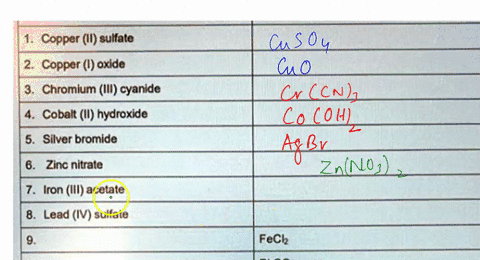 1. Copper (II) sulfate CuSO4
2. Copper (I) oxide CuO
3. Chromium (III) cyanide Cr(CN)3
4. Cobalt (II) hydroxide Co(OH)2
5. Silver bromide AgBr
6. Zinc nitrate Zn(NO3)2
7. Iron (III) acetate
8. Lead (IV) sulfate
9. FeCl2